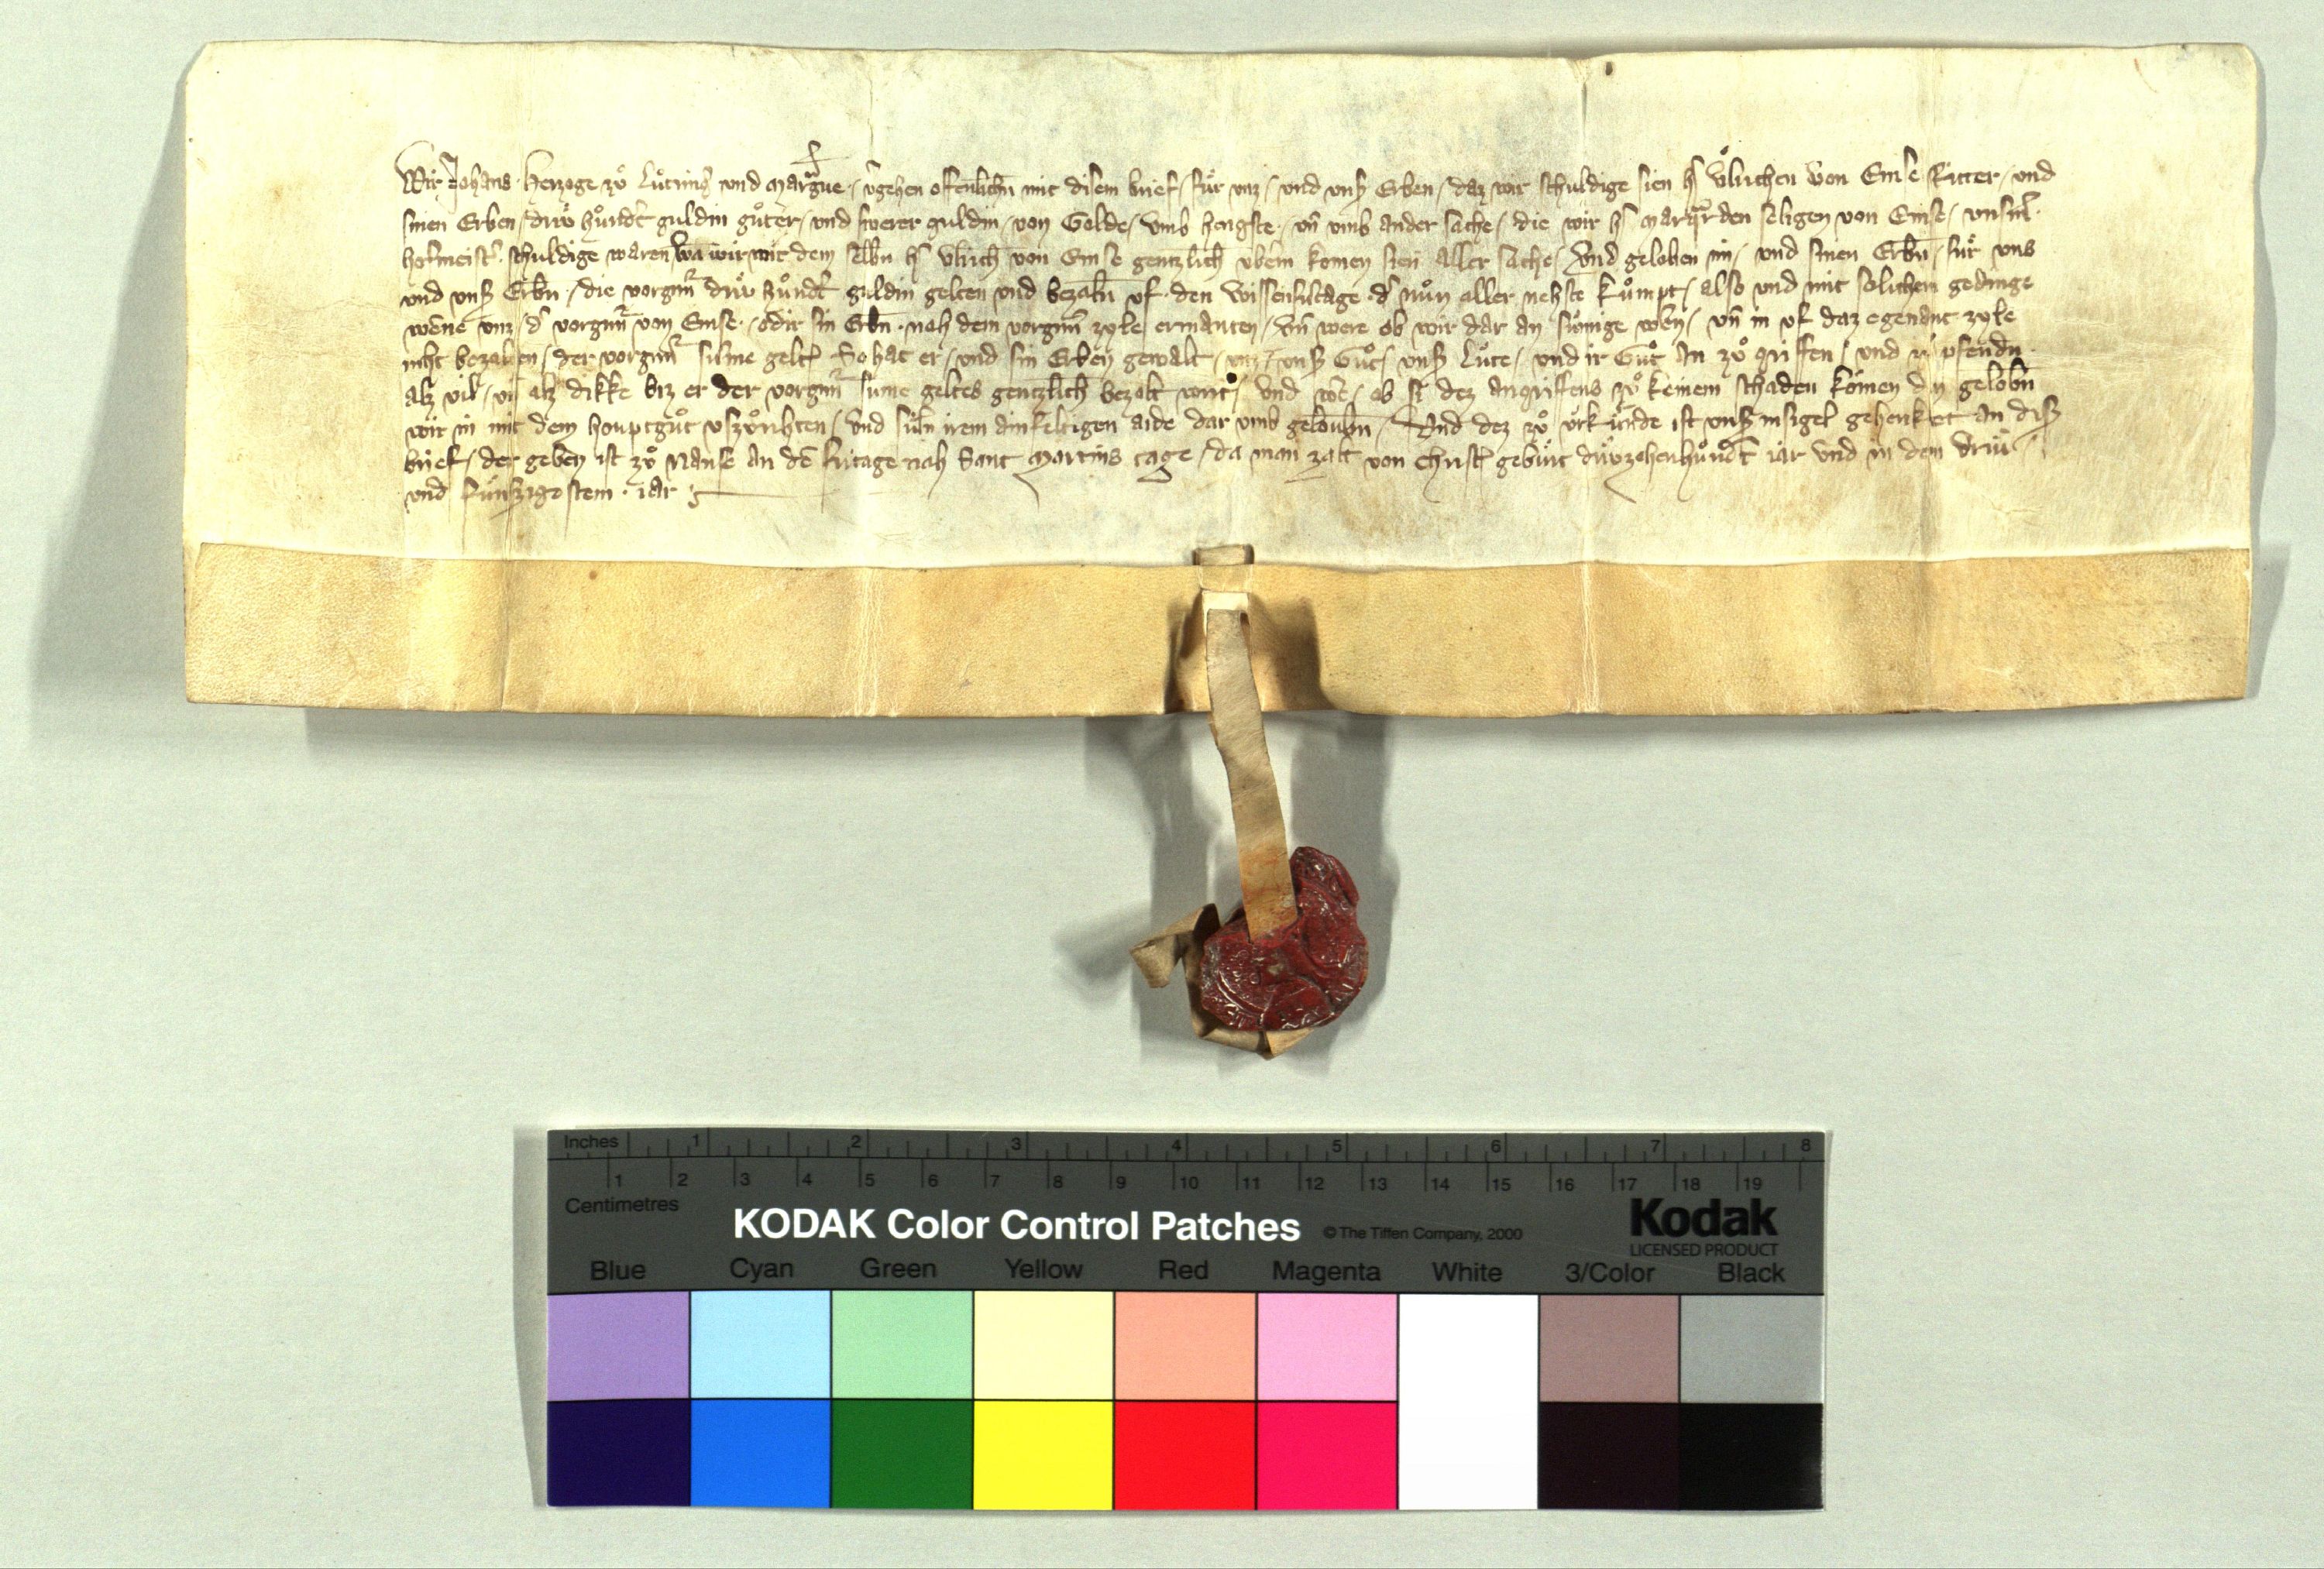 Wir Johans Herzoge zů Lůtring und Margue / vgehen offenlichn mit disem brief / fur unz / und uns Erben / daz wir schuldige sien hs Ůlrichen von Emse Ritter / und
sinen Erben / druw hundt guldin gůter / und swerer guldin / von Golde / umb hengste un umb ander sache / die wir hs Marqrden seligen von Emse /
hofmeistr schuldige waren wa wir mit dem selbn hs Ulrich von Emse gentzlich ubein komen sien aller sache / Und geloben im / und sinen Erbn / fur uns
und uns Erbn / die vorgnn druw hundt guldin gelten und bezaln uf den Wissensutage d nun aller nehste kumpt / also und mit solichen gedinge
wene unz / d vorgnn von Emse / odir sin Erbn nah dem vorgnn zyle ermanten / Un were ob wir dar an sumige wbn / un in uf daz egenant zyle
niht bezalten / der vorgnn sume gelts So hat er / und sin Erben gewalt / unz / uns Gůt / uns Lute / und ir Gůt an zů griffen / und zu pfendn
alz vil / un alz dikke biz er der vorgnn sume geltes gentzlich bezalt wirt / Und we / ob si dez angriffens zů keinem schaden komen dn gelobn
wir in mit dem houptgůt uszurihten / Und suln irem ainfeltigen aide dar umb geloubn / Und dez zů urkunde ist uns insigel gehenket an dis
brief / der geben ist zů Nanse an de fritage nah Sant Martins tage / da man zalt von Christs geburt druzehenhundt iar und in dem driu
und funfzigostem iar
Inches 1 2 3 4 5 6 7 8
1 2 3 4 5 6 7 8 9 10 11 12 13 14 15 16 17 18 19
Centimetres
KODAK Color Control Patches © The Tiffen Company, 2000 Kodak
LICENSED PRODUCT
Blue Cyan Green Yellow Red Magenta White 3/Color Black